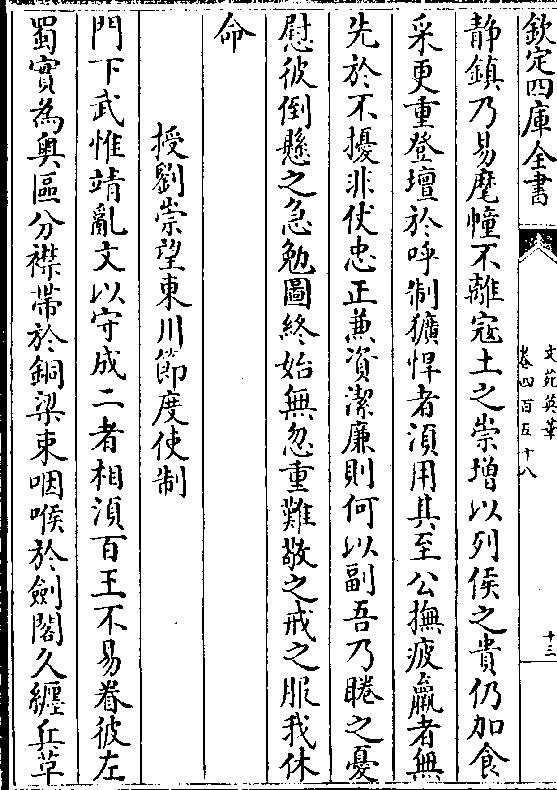 欽定四庫全書
文苑英華
卷四百五十八
十三
静鎮乃易麾幢不離寇土之崇增以列侯之貴仍加食
采更重登壇於呼制獷悍者湏用其至公撫疲羸者無
先於不擾非仗忠正兼資潔廉則何以副吾乃睠之憂
慰彼倒懸之急勉圖終始無忽重難敬之戒之服我休
命
授劉崇望東川節度使制
門下武惟靖亂文以守成二者相湏百王不易眷彼左
蜀實為奥區分襟帶於銅梁束咽喉於劍閣久纒兵革